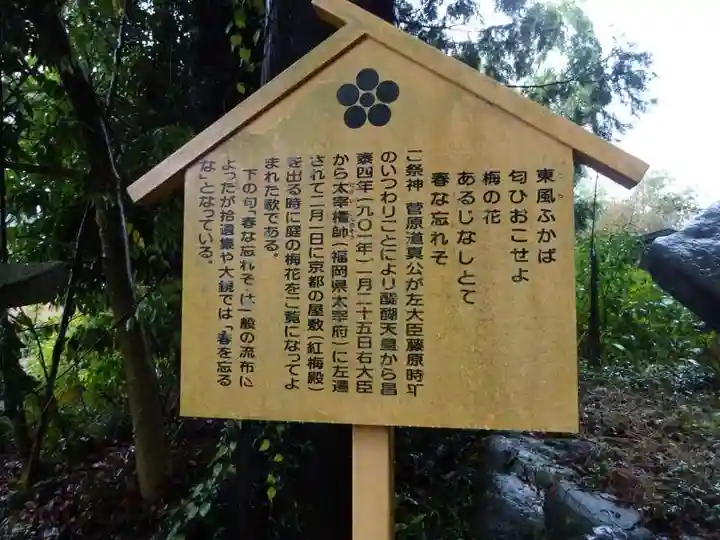 東風ふかば
匂ひおこせよ
梅の花
あるじなしとて
春な忘れそ
ご祭神　菅原道真公が左大臣藤原時平
のいつわりごとにより醍醐天皇から昌
泰四年(九〇一年)一月二十五日右大臣
から太宰権帥(福岡県太宰府)に左遷
されて二月一日に京都の屋敷(紅梅殿)
を出る時に庭の梅花をご覧になってよ
まれた歌である。
下の句「春な忘れそ」は一般の流布に
よったが拾遺集や大鏡では「春を忘る
な」となっている。